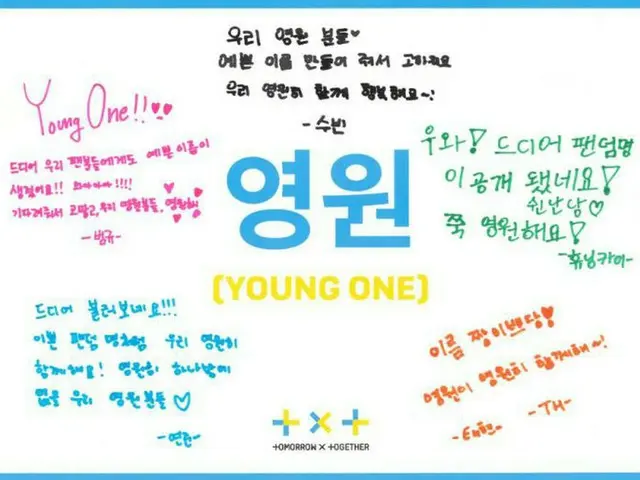 우리 영원 분들♥
예쁜 이름 만들어 줘서 고마워요
우리 영원히 함께 행복해요~!
-수빈
Young One!!♥♥
드디어 우리 팬분들에게도 예쁜 이름이
생겼어요!! 와아아아!!!!
기다려줘서 고맙고, 우리 영원분들, 영원해
-범규-
우와! 드디어 팬덤명
이 공개 됐네요!
신난당♡
쭉 영원해요!
-휴닝카이-
영원
(YOUNG ONE)
드디어 불러보네요!!!
이쁜 팬덤 명처럼 우리 영원히
함께해요! 영원히 하나밖에
없을 우리 영원분들♡
-연준-
이름 짱이쁘당♥
영원이 영원히 함께해~!
-태현- -TH-
TOMORROW X TOGETHER